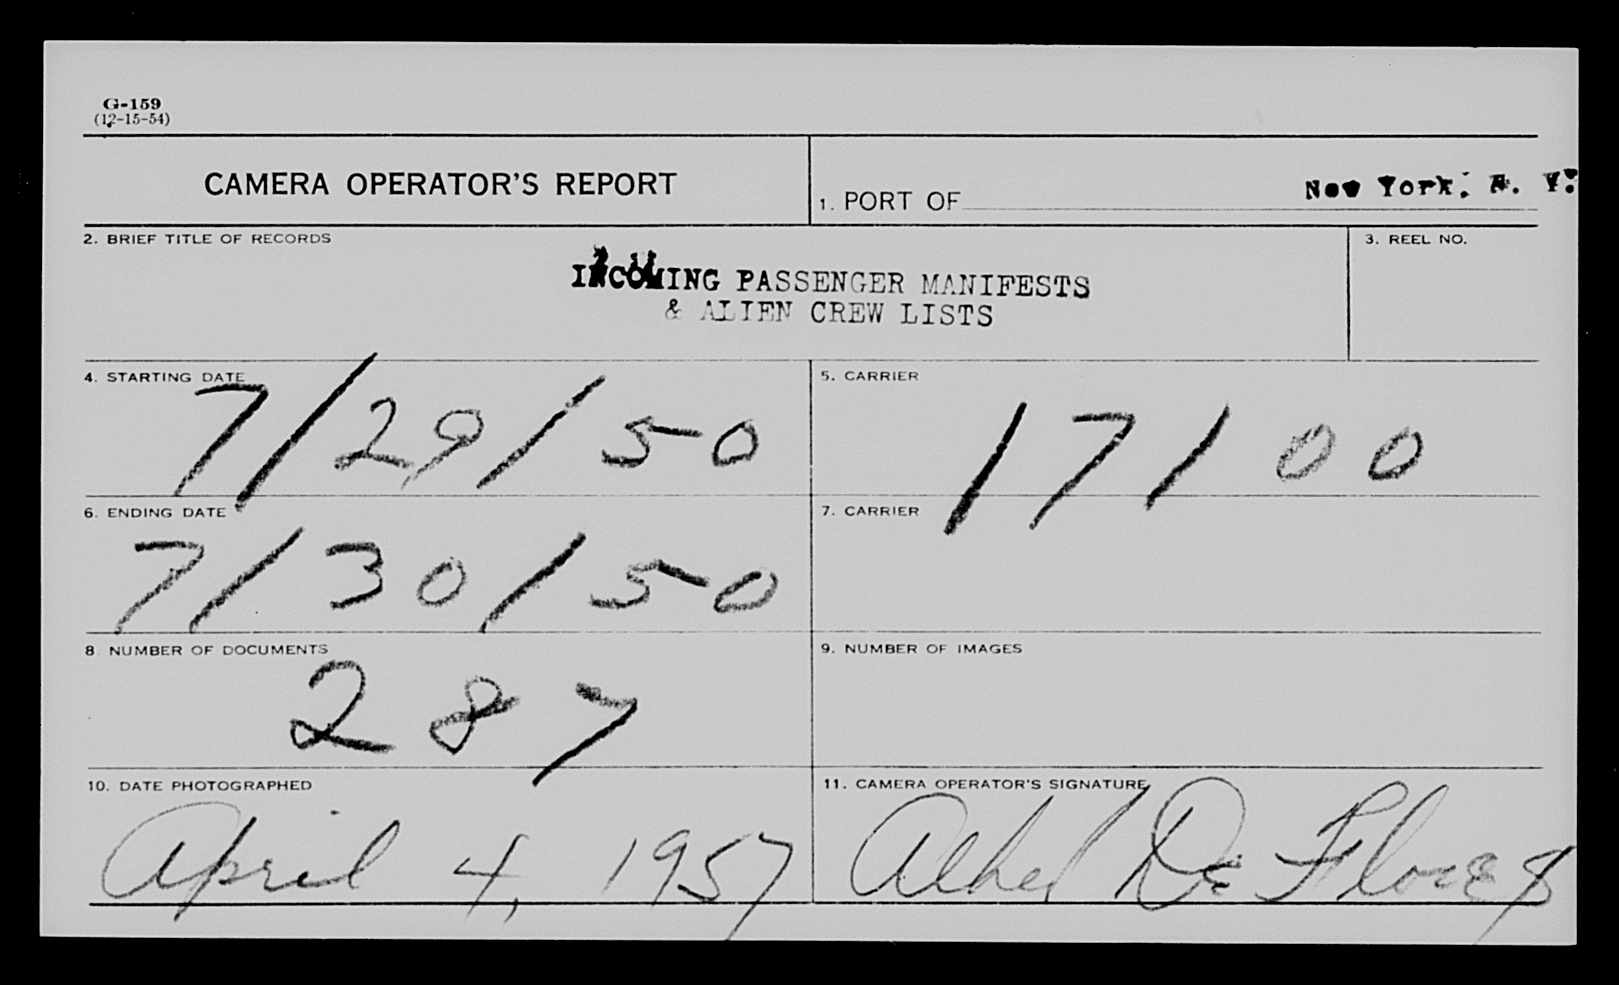 G-159
(12-15-54)
CAMERA OPERATOR'S REPORT
1. PORT OF New York, N. Y.
2. BRIEF TITLE OF RECORDS
3. REEL NO.
INCOMING PASSENGER MANIFESTS
& ALIEN CREW LISTS
4. STARTING DATE
7/29/50
5. CARRIER
17/00
6. ENDING DATE
7/30/50
7. CARRIER
8. NUMBER OF DOCUMENTS
287
9. NUMBER OF IMAGES
10. DATE PHOTOGRAPHED
April 4, 1957
11. CAMERA OPERATOR'S SIGNATURE
De Flores